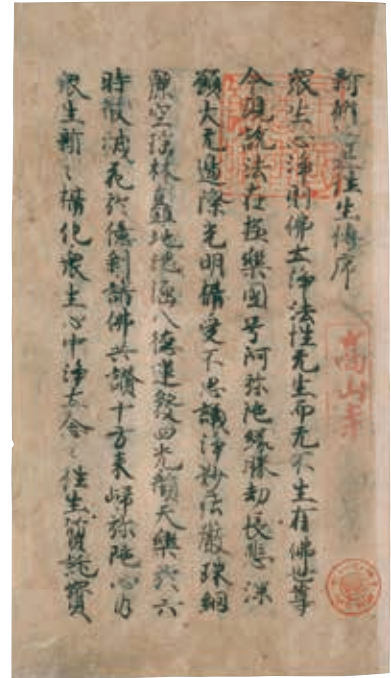 新脩淨土往生傳序
衆生心淨則佛土淨法性无生而无不生有佛世尊
今現說法在極樂國号阿弥陁緣勝劫長悲深
願大无邊際光明攝受不思議淨妙法嚴珠網
麗空瑤林矗地池涵八德蓮發四光韻天樂於六
時散減花於億刹諸佛共讚十方來歸弥陁心内
衆生新〻攝化衆生心中淨土念〻往生質託寶
高山寺